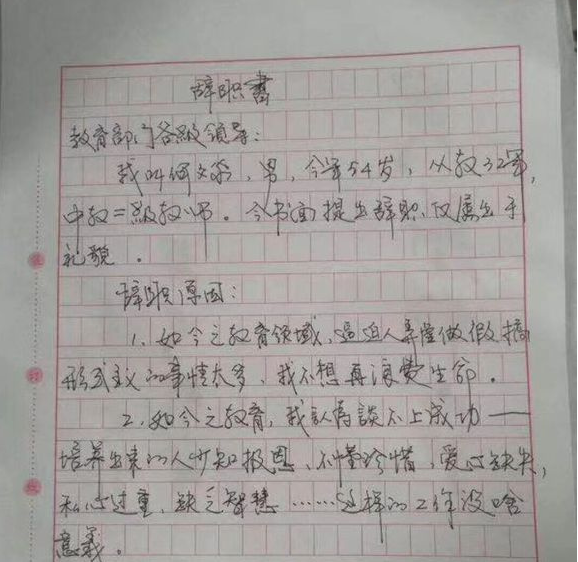 辞职書
教育部门各级领导：
我叫何文秀，男，今年54岁，从教32年，
中教二级教师。今书面提出辞职，仅属出于
礼貌。
辞职原因：
1、如今之教育领域，逼迫人弄虚做假搞
形式主义的事情太多，我不想再浪费生命。
2、如今之教育，我认为谈不上成功——
培养出来的人少知报恩、不懂珍惜、爱心缺失，
私心过重，缺乏智慧……这样的工作没啥
意義。